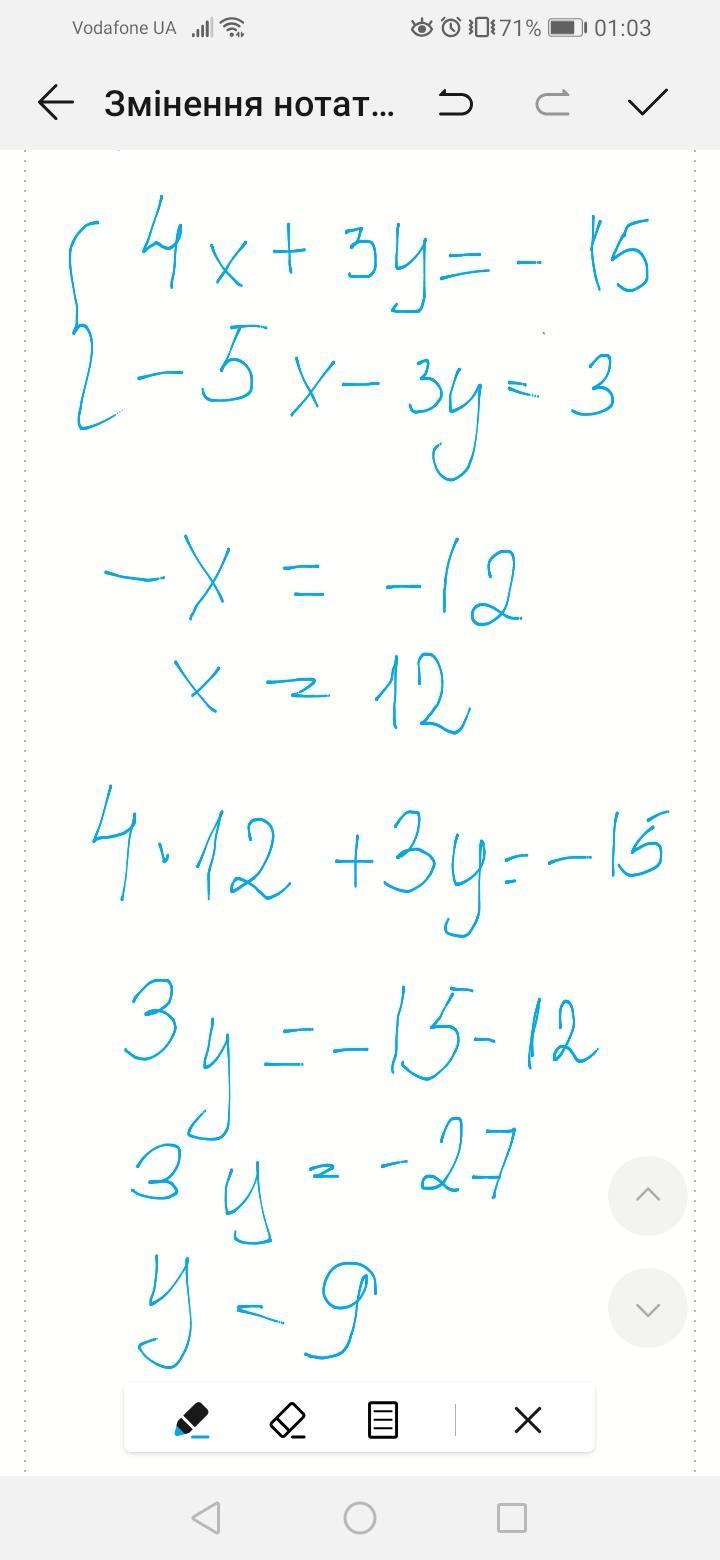 Vodafone UA 71% 01:03
Змінення нотат...
4x + 3y = - 15
- 5x - 3y = 3
- x = - 12
x = 12
4 · 12 + 3y = - 15
3y = - 15 - 12
3y = - 27
y = 9